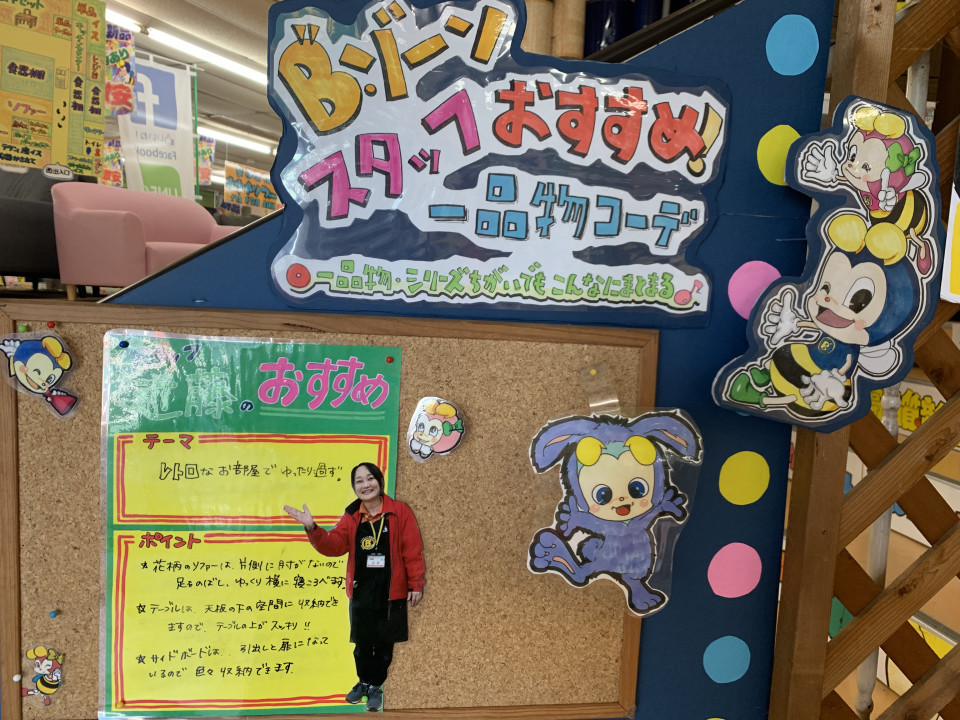 B・ゾーン
スタッフおすすめ!
一品物コーデ
一品物・シリーズちがいでもこんなにまとまる♪
スタッフ
近藤のおすすめ
テーマ
レトロなお部屋でゆったり過ず。
ポイント
★花柄のソファーは、片側に肘がないので
足ものばし、ゆっくり横に寝ころべます。
☆テーブルは、天板の下の空間に収納でき
ますので、テーブルの上がスッキリ!!
☆サイドボードは、引出しと扉になって
いるので色々収納できます。
食器棚
ソファー
西出入口
Facebook